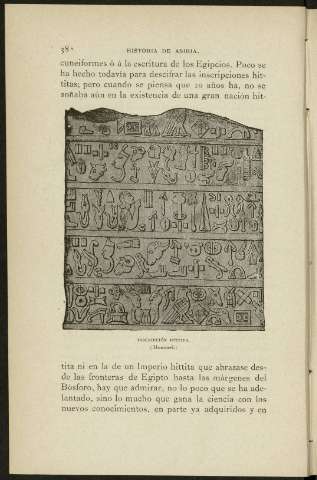 38
HISTORIA DE ASIRIA.
cuneiformes ó á la escritura de los Egipcios. Poco se
ha hecho todavía para descifrar las inscripciones hit-
titas; pero cuando se piensa que 20 años ha, no se
soñaba aún en la existencia de una gran nación hit-
INSCRIPCIÓN HITTITA.
tita ni en la de un Imperio hittita que abrazase des-
de las fronteras de Egipto hasta las márgenes del
Bósforo, hay que admirar, no lo poco que se ha ade-
lantado, sino lo mucho que gana la ciencia con los
nuevos conocimientos, en parte ya adquiridos y en